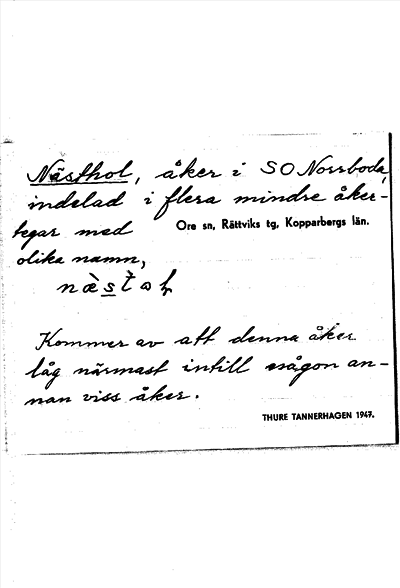 Nästhol, åker i SO Norrboda,
indelad i flera mindre åker-
tegar med
Ore sn, Rättviks tg, Kopparbergs län.
olika namn,
Kommer av att denna åker
låg närmast intill någon an-
nan viss åker.
THURE TANNERHAGEN 1947.